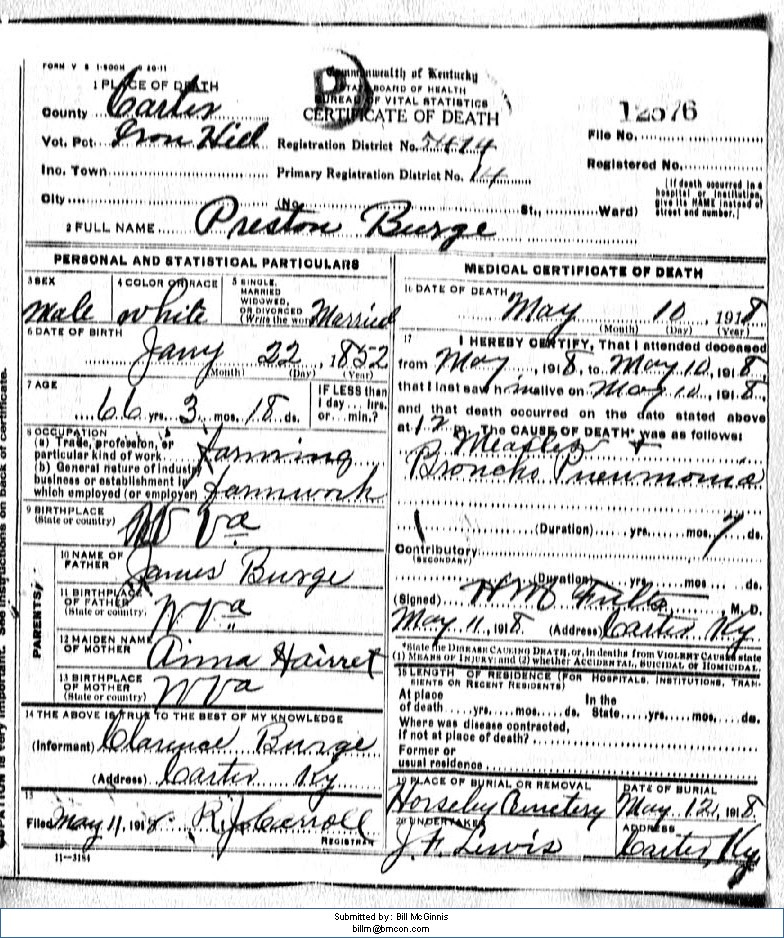 FORM V S 1-500M 6 20-11
Commonwealth of Kentucky
STATE BOARD OF HEALTH
BUREAU OF VITAL STATISTICS
CERTIFICATE OF DEATH
1 PLACE OF DEATH
County Carter
Vot. Pct. Iron Hill
Inc. Town
City
Registration District No.
Primary Registration District No. 14
(No. St., Ward)
12576
File No.
Registered No.
[If death occurred in a hospital or institution, give its NAME instead of street and number.]
2 FULL NAME Preston Burge
PERSONAL AND STATISTICAL PARTICULARS
3 SEX male
4 COLOR OR RACE white
5 SINGLE, MARRIED WIDOWED, OR DIVORCED (Write the word) Married
6 DATE OF BIRTH
Jany 22, 1852
(Month) (Day) (Year)
7 AGE
66 yrs. 3 mos. 18 ds.
IF LESS than 1 day... hrs. or... min.?
8 OCCUPATION
(a) Trade, profession, or particular kind of work farming
(b) General nature of industry business or establishment in which employed (or employer) farmwork
9 BIRTHPLACE (State or country) W Va
PARENTS
10 NAME OF FATHER James Burge
11 BIRTHPLACE OF FATHER (State or country) W Va
12 MAIDEN NAME OF MOTHER Anna Hairret
13 BIRTHPLACE OF MOTHER (State or country) W Va
14 THE ABOVE IS TRUE TO THE BEST OF MY KNOWLEDGE
(Informant) Clarence Burge
(Address) Carter Ky
15
Filed May 11, 1918 R. J. Carroll
REGISTRAR
11-3184
MEDICAL CERTIFICATE OF DEATH
16 DATE OF DEATH May 10, 1918
(Month) (Day) (Year)
17 I HEREBY CERTIFY, That I attended deceased
from May, 1918, to May 10, 1918,
that I last saw him alive on May 10, 1918,
and that death occurred on the date stated above
at 12 m. The CAUSE OF DEATH* was as follows:
Measles +
Broncho Pneumonia
(Duration) yrs. mos. 7 ds.
Contributory
(SECONDARY)
(Duration) yrs. mos. ds.
(Signed) M. D.
May 11, 1918. (Address) Carter Ky
*State the DISEASE CAUSING DEATH, or, in deaths from VIOLENT CAUSES state
(1) MEANS OF INJURY; and (2) whether ACCIDENTAL, SUICIDAL or HOMICIDAL.
18 LENGTH OF RESIDENCE (FOR HOSPITALS, INSTITUTIONS, TRANSIENTS OR RECENT RESIDENTS)
At place of death yrs. mos. ds. In the State yrs. mos. ds.
Where was disease contracted, if not at place of death?
Former or usual residence
19 PLACE OF BURIAL OR REMOVAL
Horseley Cemetery
DATE OF BURIAL
May 12, 1918
20 UNDERTAKER
J. F. Lewis
ADDRESS
Carter, Ky
See instructions on back of certificate.
OCCUPATION is very important.
Submitted by: Bill McGinnis
billm@bmcon.com